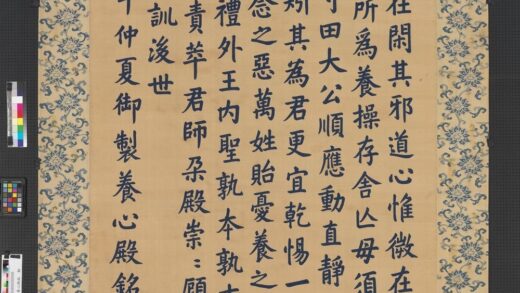 在閑其邪道心惟微在
所爲養操存舍亾毋須
寸田大公順應動直靜
矧其為君更宜乾惕一
念之惡萬姓貽憂養之
禮外王內聖孰本孰
責萃君師朶殿崇〻願
訓後世
仲夏御製養心殿銘